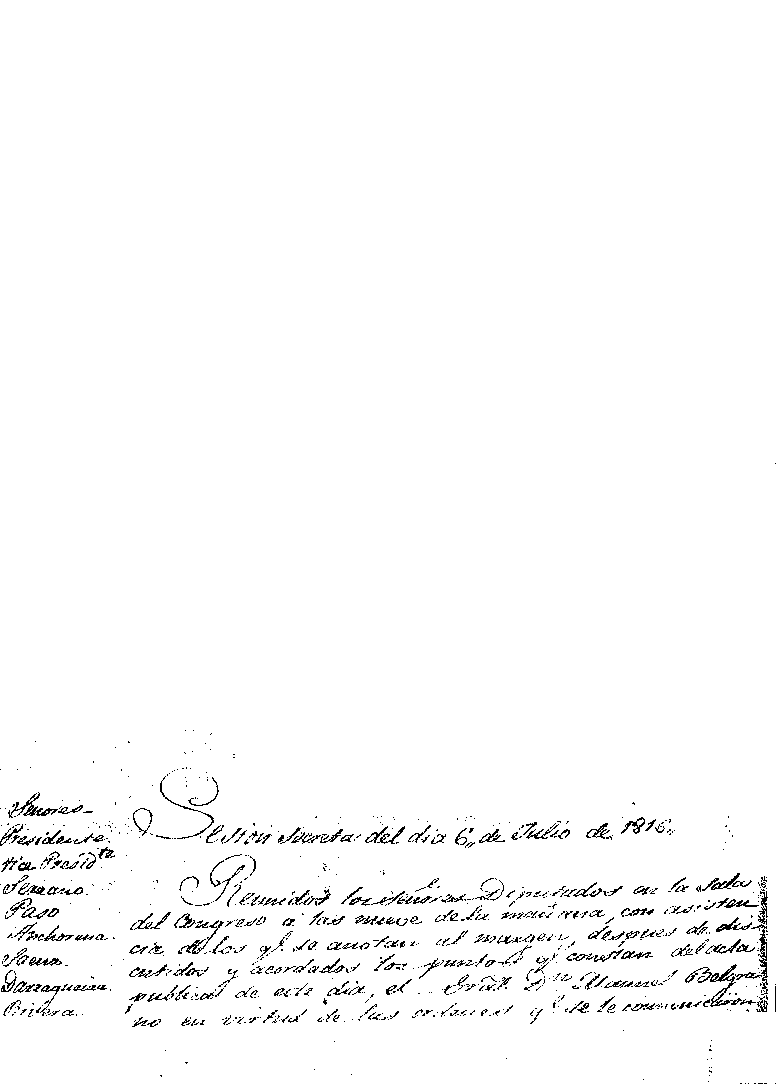 Señores
Presidente
vice Presid.te
Serrano
Paso
Anchorena
Saenz
Darragueira
Rivera
Sesion secreta del dia 6,, de Julio de 1816,,
Reunidos los señores Diputados en la sala
del Congreso á las nueve de la mañana, con asisten
cia de los q.e se anotan al margen, despues de dis
cutidos y acordados los puntos q.e constan del acta
publica de este dia, el Gral. D.n Manuel Belgra
no en virtud de las ordenes q.e se le comunicaron